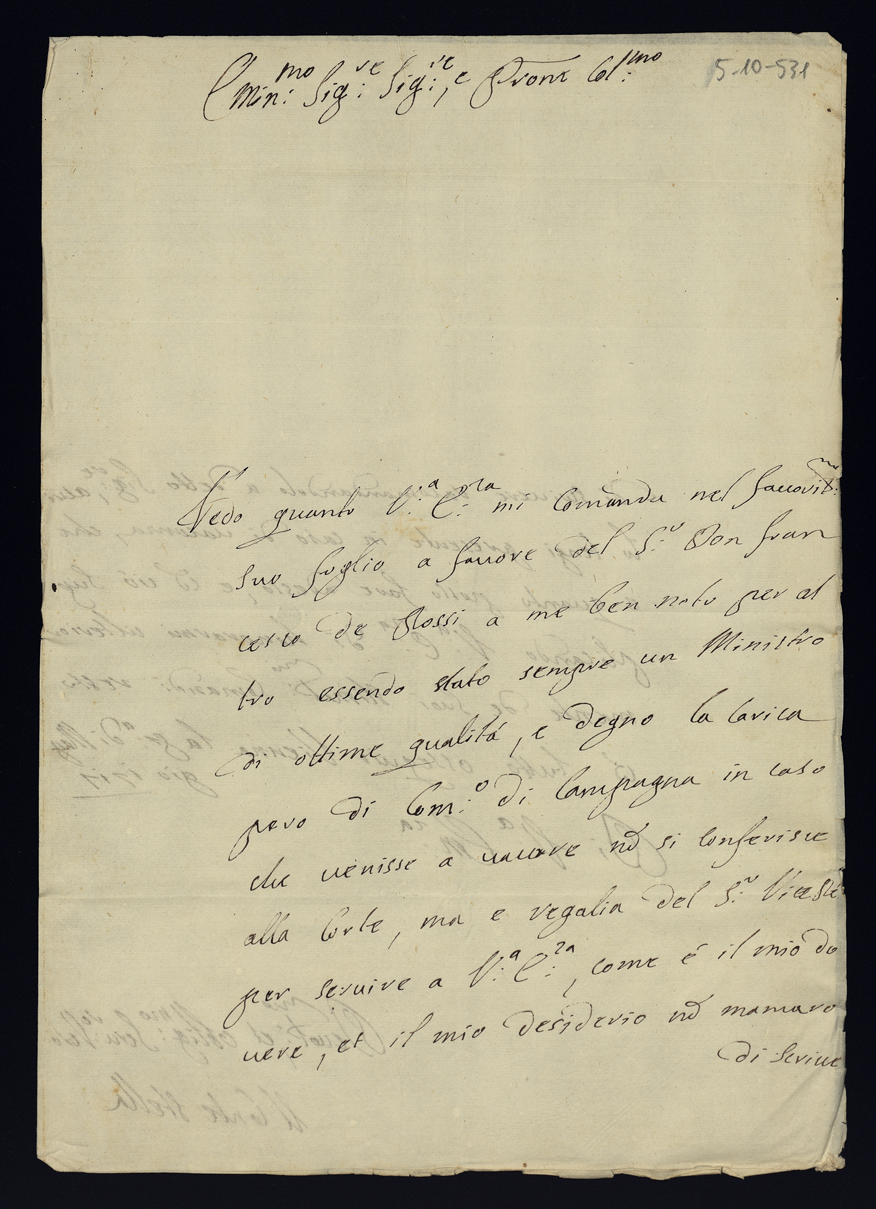 5-10-531
Emin:mo Sig:re Sig:re, e Prone Col:mo
Vedo quanto V:a E:za mi comanda nel fauorit:mo
suo foglio a fauore del S:r Don Fran
cesco de Rossi a me ben noto per al
tro essendo stato sempre un Ministro
di ottime qualità, e degno la carica
pero di Com:o di Campagna in caso
che uenisse a uacare nõ si conferisce
alla Corte, ma e regalia del S:r Vice Rè
per seruire a V:a E:za, come é il mio do
uere, et il mio desiderio nõ mancaro
di scriue